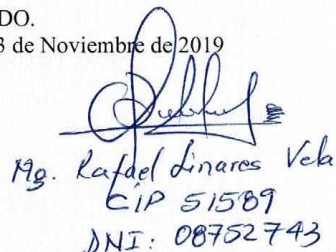 DO.
3 de Noviembre de 2019
Mg. Rafael Linares Vela
CIP 51589
DNI: 08752743